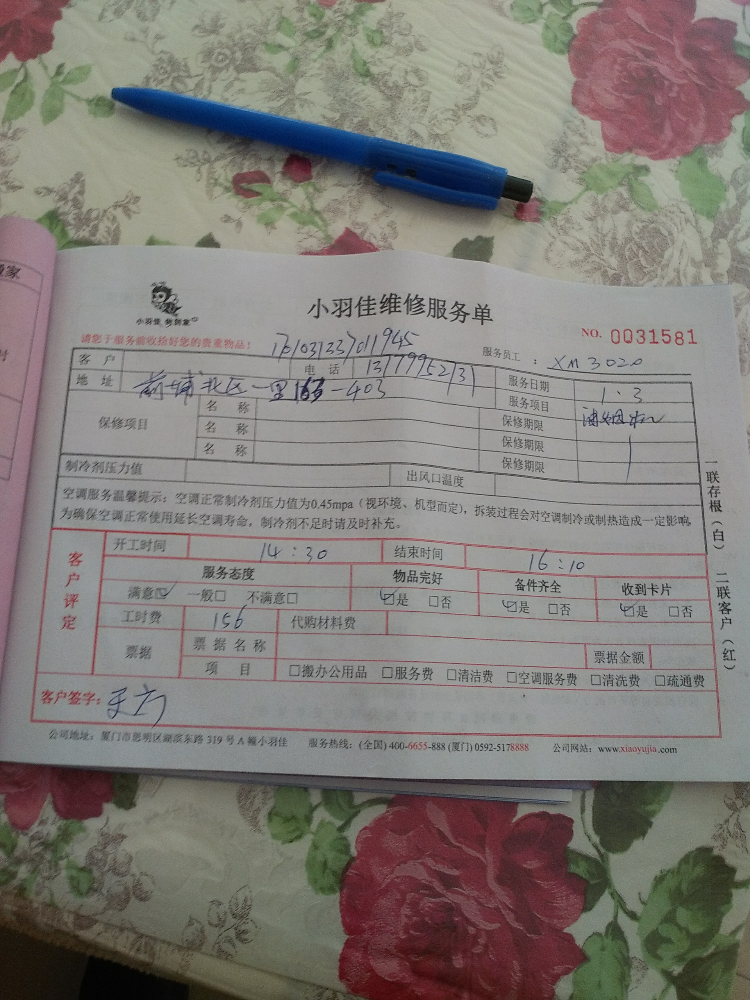 小羽佳维修服务单
小羽佳 好到家
NO. 0031581
请您于服务前收拾好您的贵重物品！
服务员工： XM 3020
客户 电话 服务日期 1.3
地址 前埔北区一里 -403 服务项目 油烟机
保修项目 名称 保修期限
名称 保修期限
名称 保修期限
制冷剂压力值 出风口温度
空调服务温馨提示：空调正常制冷剂压力值为0.45mpa（视环境、机型而定），拆装过程会对空调制冷或制热造成一定影响
为确保空调正常使用延长空调寿命，制冷剂不足时请及时补充。
客户评定
开工时间 14:30 结束时间 16:10
服务态度 物品完好 备件齐全 收到卡片
满意☑ 一般□ 不满意□ ☑是 □否 ☑是 □否 ☑是 □否
工时费 156 代购材料费
票据 票据名称 票据金额
项目 □搬办公用品 □服务费 □清洁费 □空调服务费 □清洗费 □疏通费
客户签字：
公司地址：厦门市思明区湖滨东路 319 号 A 幢小羽佳 服务热线：(全国) 400-6655-888 (厦门) 0592-5178888 公司网站：www.xiaoyujia.com
一联存根（白） 二联客户（红）